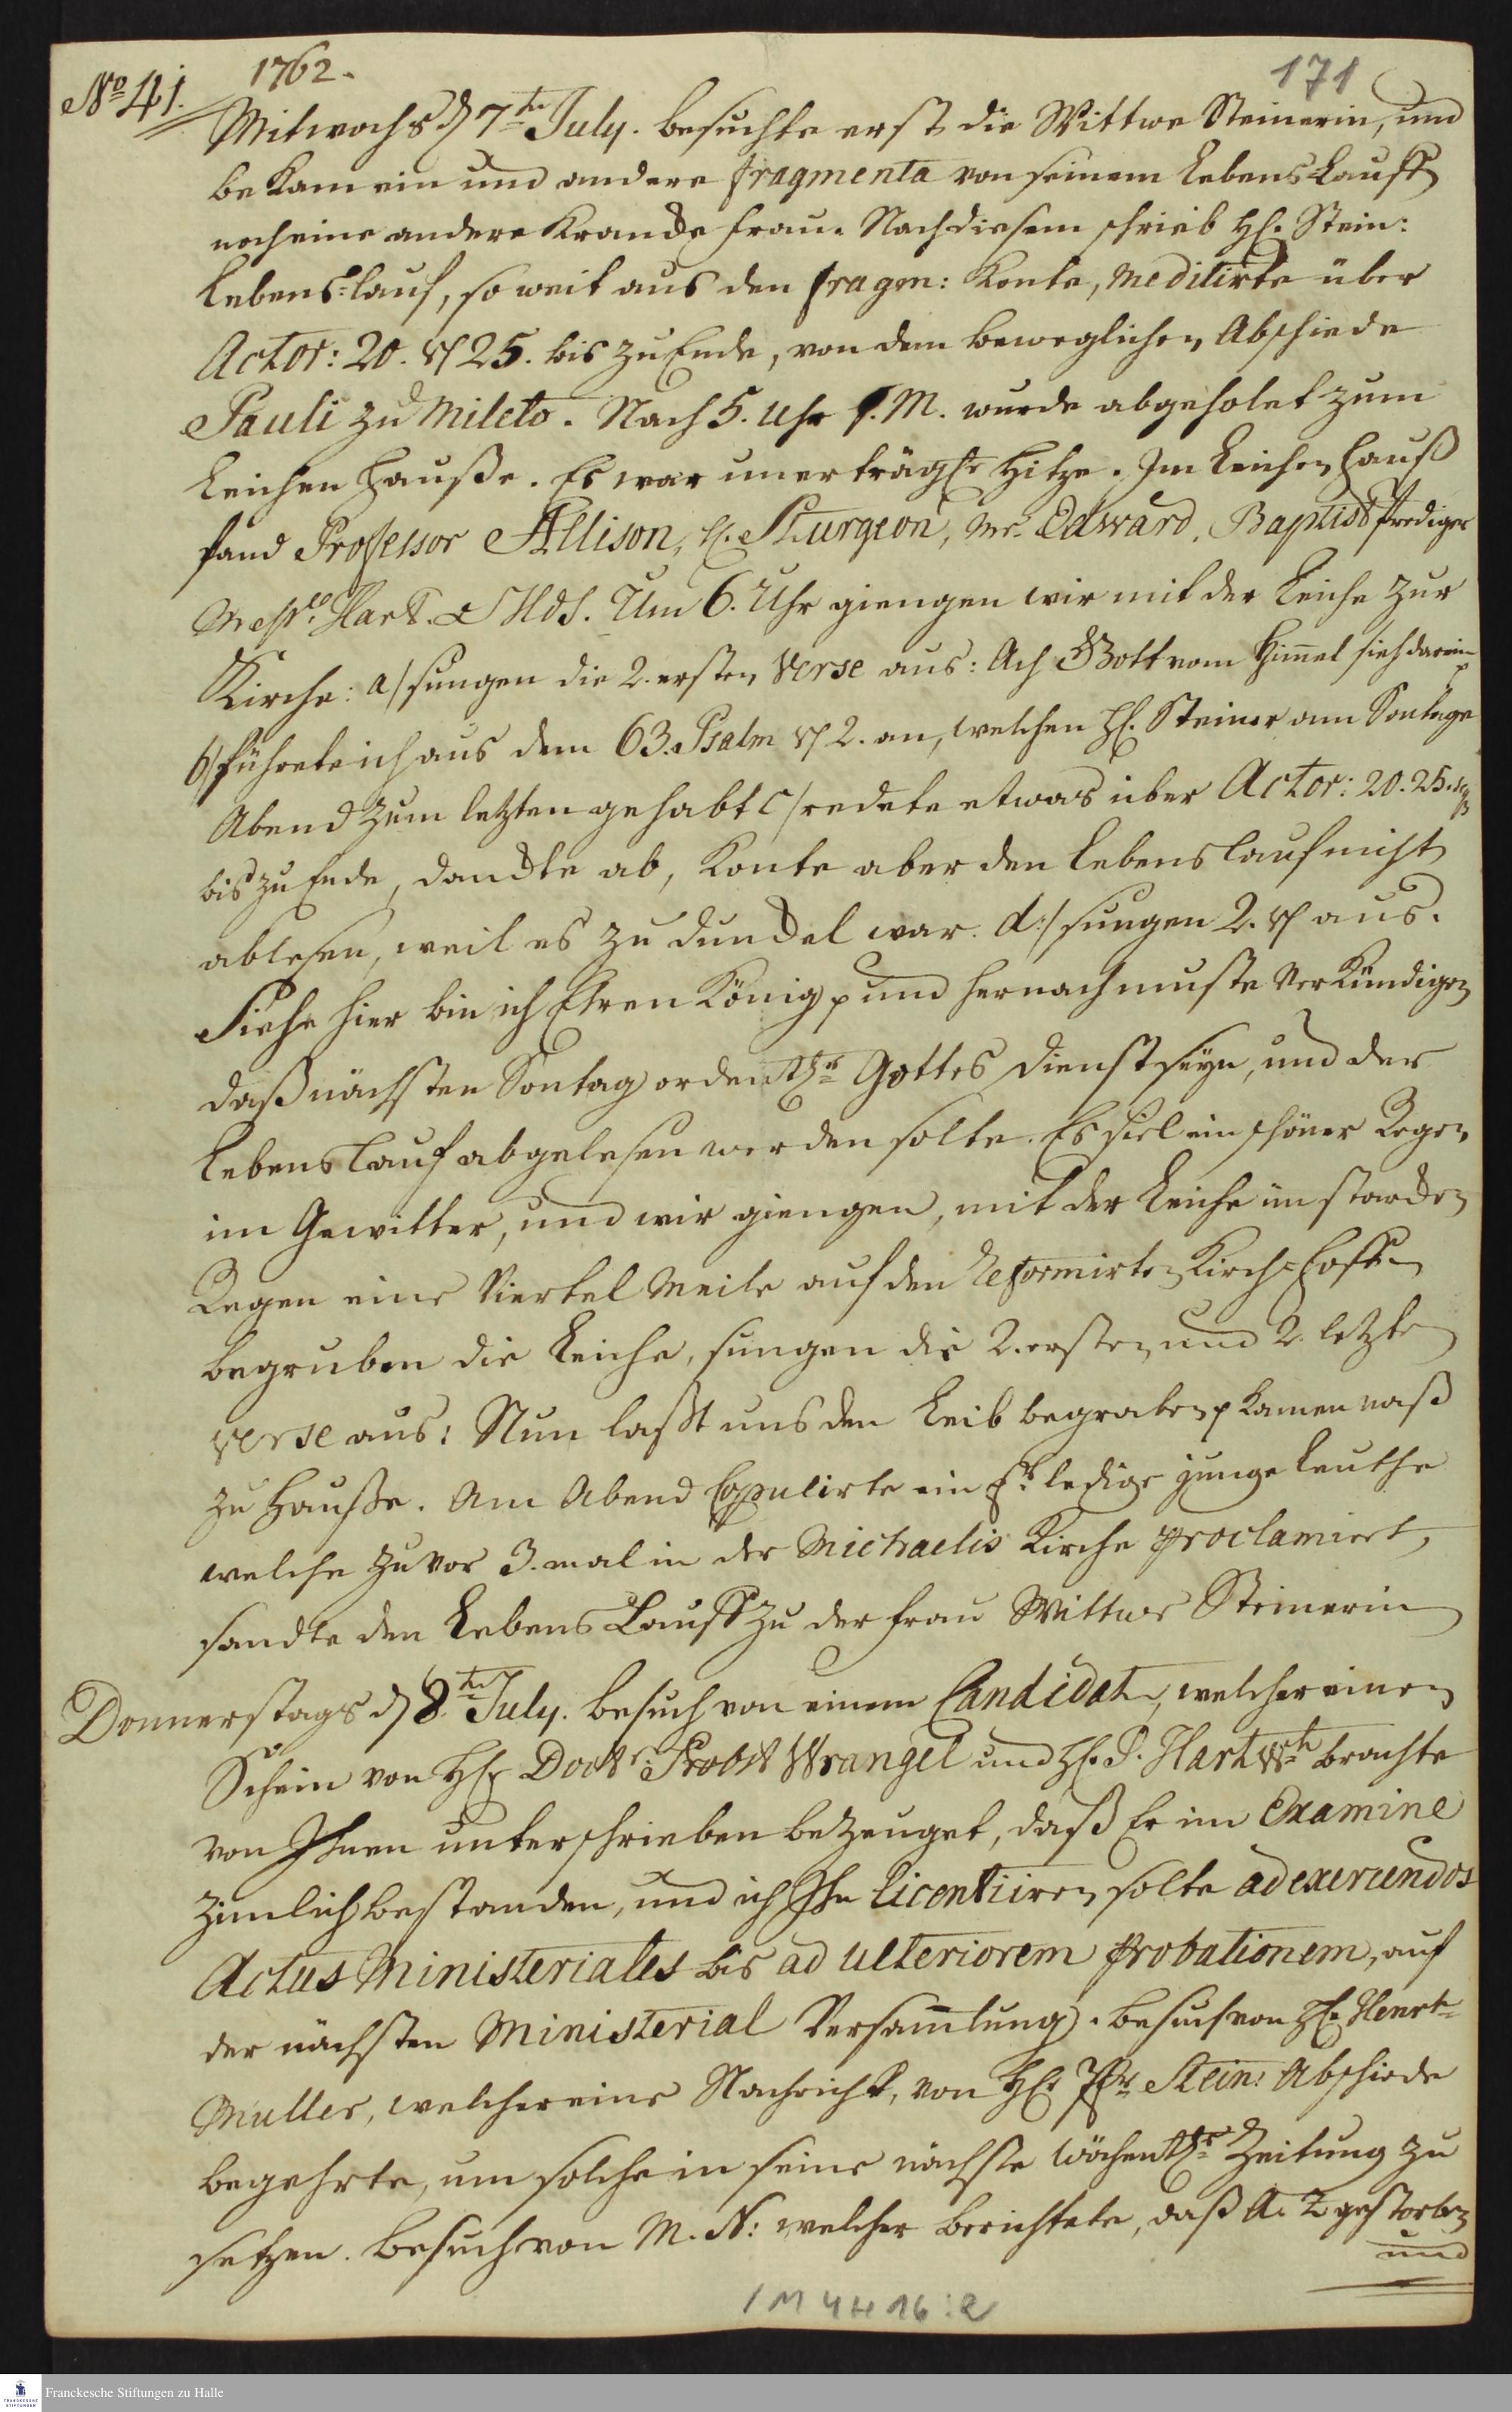 No 41.
1762.
171
Mitwochs d 7te July. besuchte erst die Wittwe Steinerin, und
bekam ein und andere fragmenta von seinem Lebens-Lauff
noch eine andere Krancke frau. Nach diesem schrieb H. Stein:
Lebens-lauf, so weit aus den fragm: konte, meditirte über
Actor: 20. V 25. bis zu Ende, von dem beweglichen Abschiede
Pauli zu Mileto. Nach 5. Uhr p. M. wurde abgeholet zum
Leichen Hauße. Es war unerträgle Hitze. Im Leichen Hauß
fand Professor Allison, H. Sturgeon, Mr. Edward, Baptist Prediger
Messrs Hart. Um 6. Uhr giengen wir mit der Leiche zur
Kirche: a/ sungen die 2. ersten Verse aus: Ach Gott vom Himmel sieh darein p
b/ führete ich aus dem 63. Psalm V 2. an, welchen H. Steiner am Sontage
Abend zum letzten gehabt c/ redete etwas über Actor: 20. 25.
bis zu Ende, danckte ab, konte aber den Lebenslauf nicht
ablesen, weil es zu dunckel war. d:/ sungen 2. V aus.
Siehe hier bin ich Ehren König p und hernach muste verkündigen
daß nächsten Sontag ordentlr Gottes dienst seyn, und der
Lebenslauf abgelesen werden solte. Es fiel ein schöner Regen
im Gewitter, und wir giengen, mit der Leiche im starcken
Regen eine Viertel Meile auf den Reformirten Kirch-Hoff
begruben die Leiche, sungen die 2. ersten und 2. letzte
Verse aus: Nun laßt uns den Leib begraben p kamen naß
zu Hauße. Am Abend Copulirte ein Pr ledige junge Leuthe
welche zuvor 3. mal in der Michaelis Kirche proclamirt,
sandte den Lebens Lauff zu der frau Wittwe Steinerin
Donnerstags d 8te July. Besuch von einem Candidate, welcher einen
Schein von H Doctr Probst Wrangel und H. P. Hartw. brachte
von Ihnen unterschrieben bezeuget, daß Er im Examine
zimlich bestanden, und ich Ihn licentiiren solte ad exercendos
Actus Ministeriales bis ad ulteriorem probationem, auf
der nächsten Ministerial Versamlung. Besuch von H. Henr
Muller, welcher eine Nachricht, von H. Pfr Stein: Abschiede
begehrte, um solche in seine nächste wöchentle Zeitung zu
setzen. Besuch von M. N: welcher berichtete, daß A. Z gestorben
und
1 M 4 H 16 : 2
Franckesche Stiftungen zu Halle